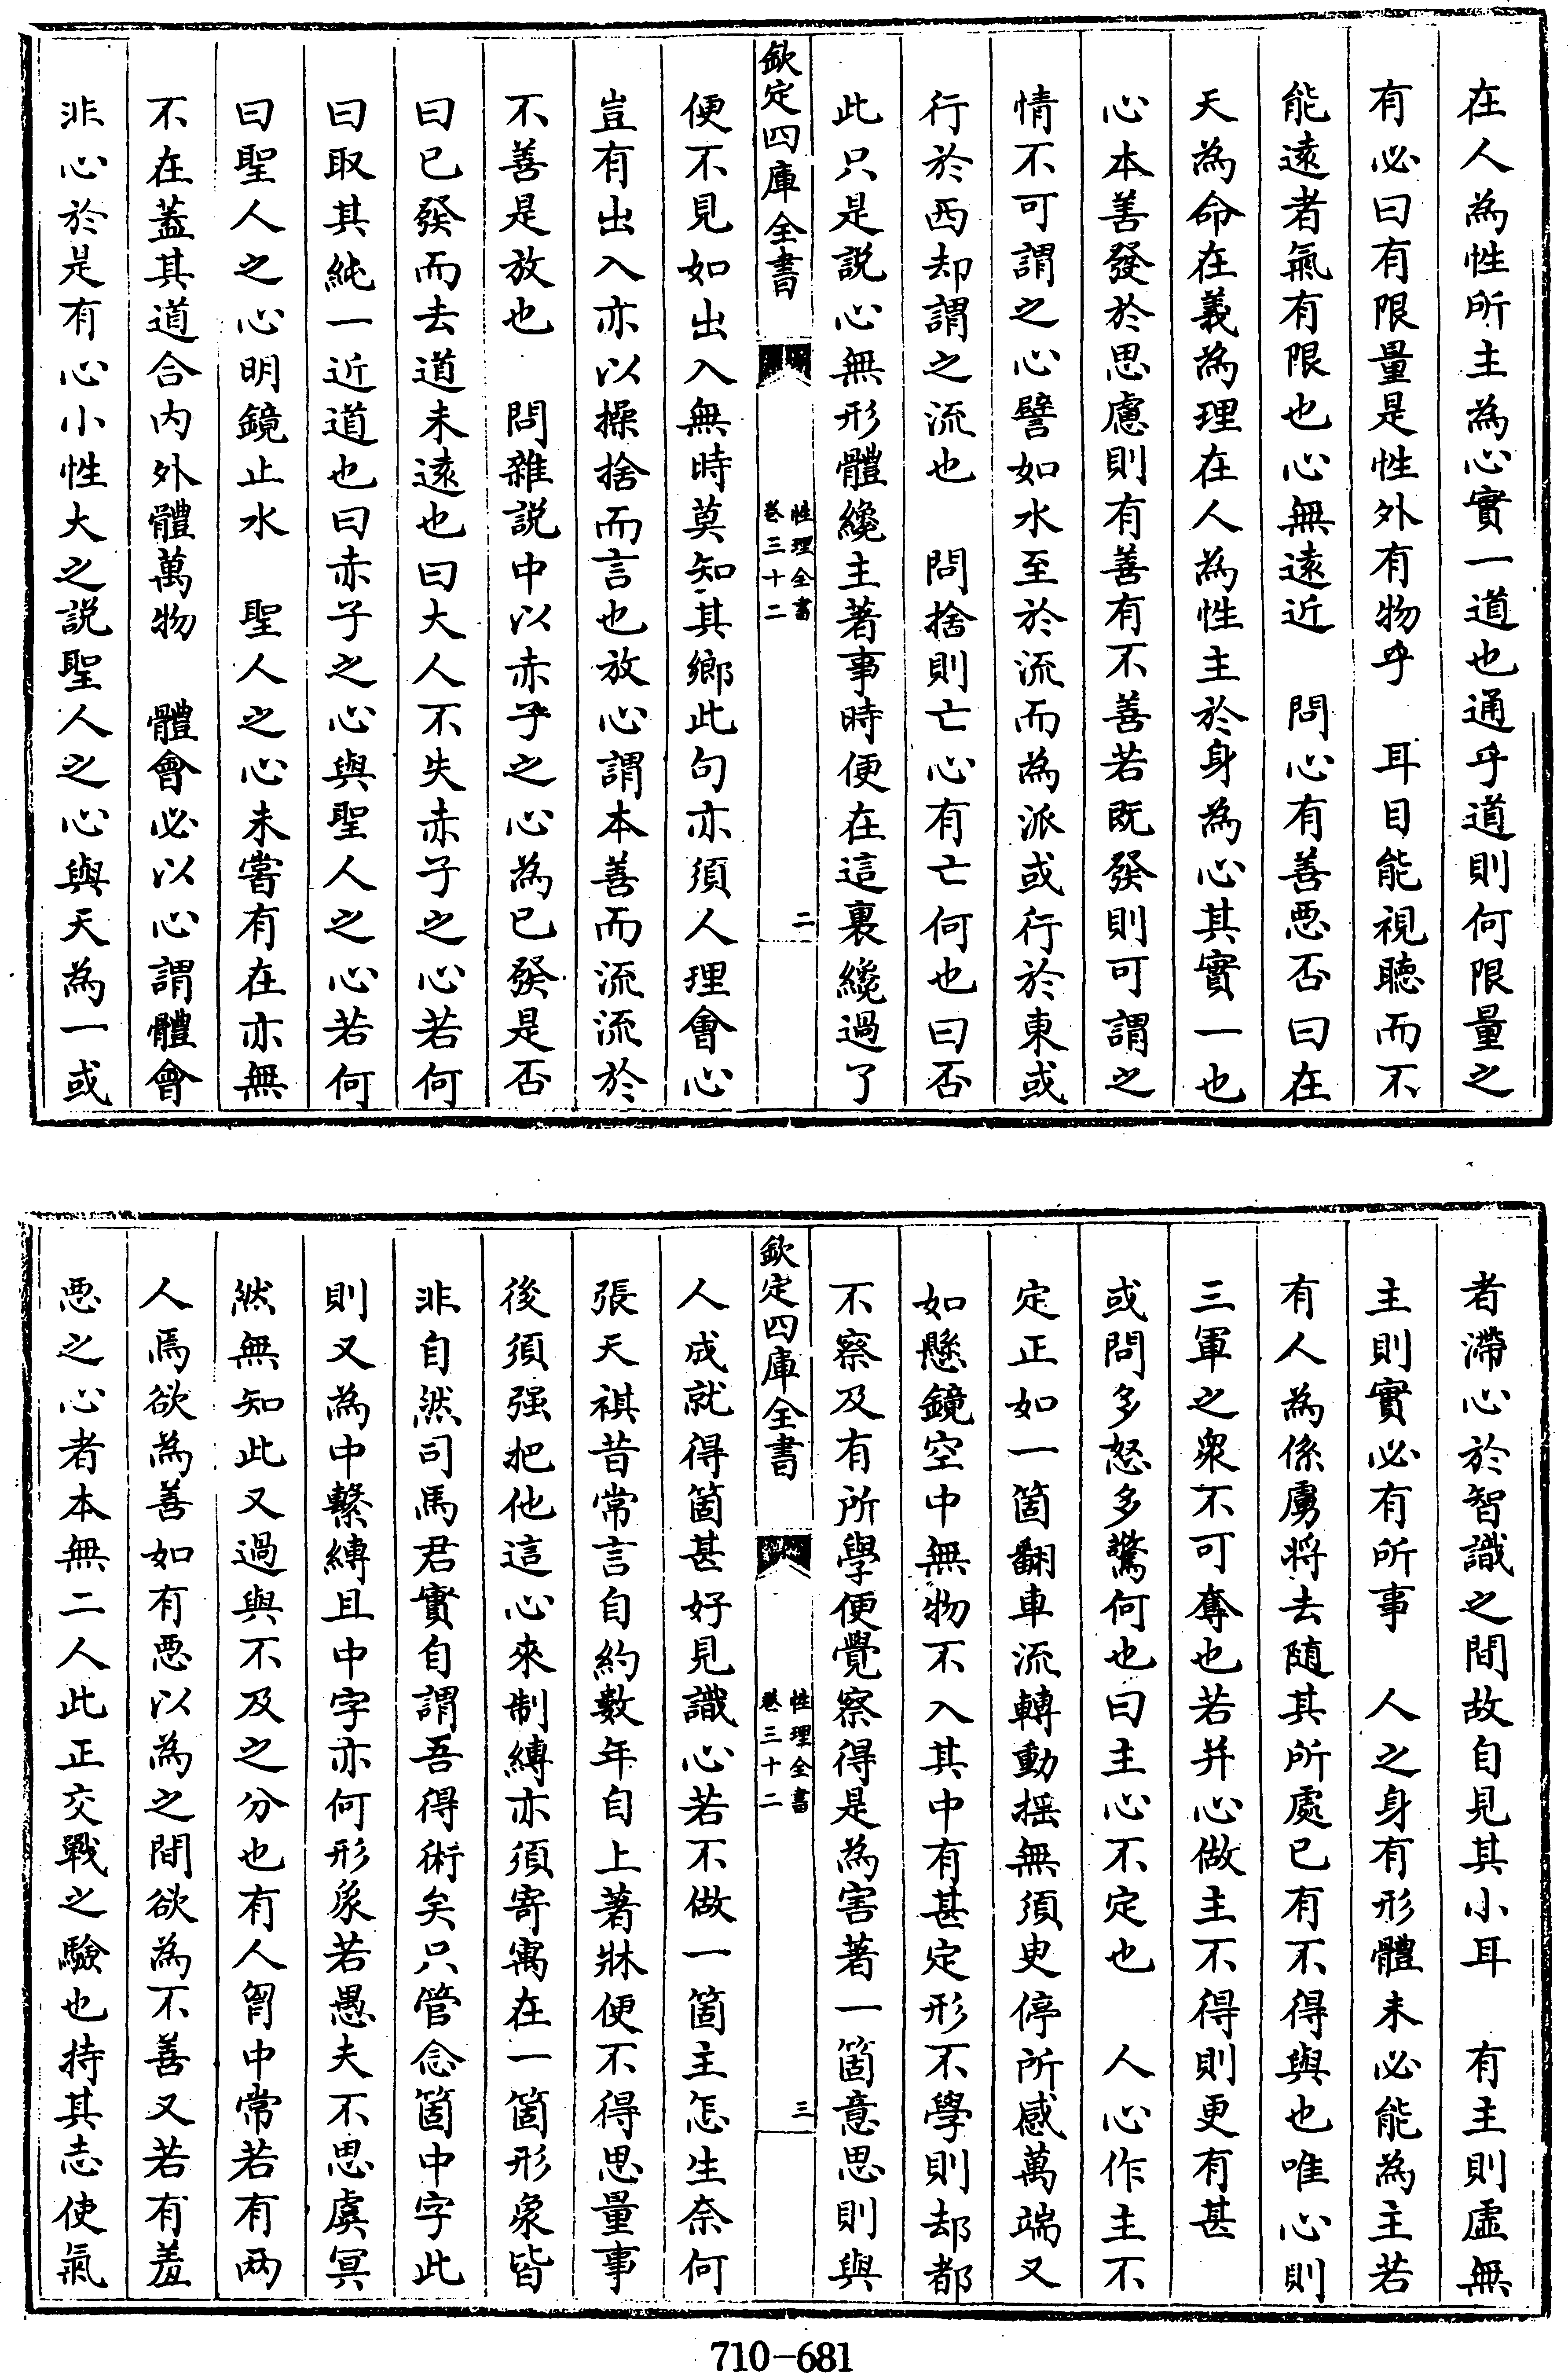 在人為性所主為心實一道也通乎道則何限量之
有必曰有限量是性外有物乎　耳目能視聽而不
能遠者氣有限也心無遠近　問心有善惡否曰在
天為命在義為理在人為性主於身為心其實一也
心本善發於思慮則有善有不善若既發則可謂之
情不可謂之心譬如水至於流而為派或行於東或
行於西却謂之流也　問捨則亡心有亡何也曰否
此只是説心無形體纔主著事時便在這裏纔過了
欽定四庫全書
性理全書
卷三十二
二
便不見如出入無時莫知其鄉此句亦須人理會心
豈有出入亦以操捨而言也放心謂本善而流流於
不善是放也　問雜説中以赤子之心為已發是否
曰已發而去道未遠也曰大人不失赤子之心若何
曰取其純一近道也曰赤子之心與聖人之心若何
曰聖人之心明鏡止水　聖人之心未嘗有在亦無
不在蓋其道合内外體萬物　體會必以心謂體會
非心於是有心小性大之説聖人之心與天為一或
者滯心於智識之間故自見其小耳　有主則虛無
主則實必有所事　人之身有形體未必能為主若
有人為係虜將去隨其所處已有不得與也唯心則
三軍之衆不可奪也若并心做主不得則更有甚
或問多怒多驚何也曰主心不定也　人心作主不
定正如一箇翻車流轉動揺無須臾停所感萬端又
如懸鏡空中無物不入其中有甚定形不學則却都
不察及有所學便覺察得是為害著一箇意思則與
欽定四庫全書
性理全書
卷三十二
三
人成就得箇甚好見識心若不做一箇主怎生奈何
張天祺昔常言自約數年自上著牀便不得思量事
後須强把他這心來制縛亦須寄寓在一箇形象皆
非自然司馬君實自謂吾得術矣只管念箇中字此
則又為中繫縛且中字亦何形象若愚夫不思慮冥
然無知此又過與不及之分也有人胷中常若有两
人焉欲為善如有惡以為之間欲為不善又若有羞
惡之心者本無二人此正交戰之驗也持其志使氣
710-681